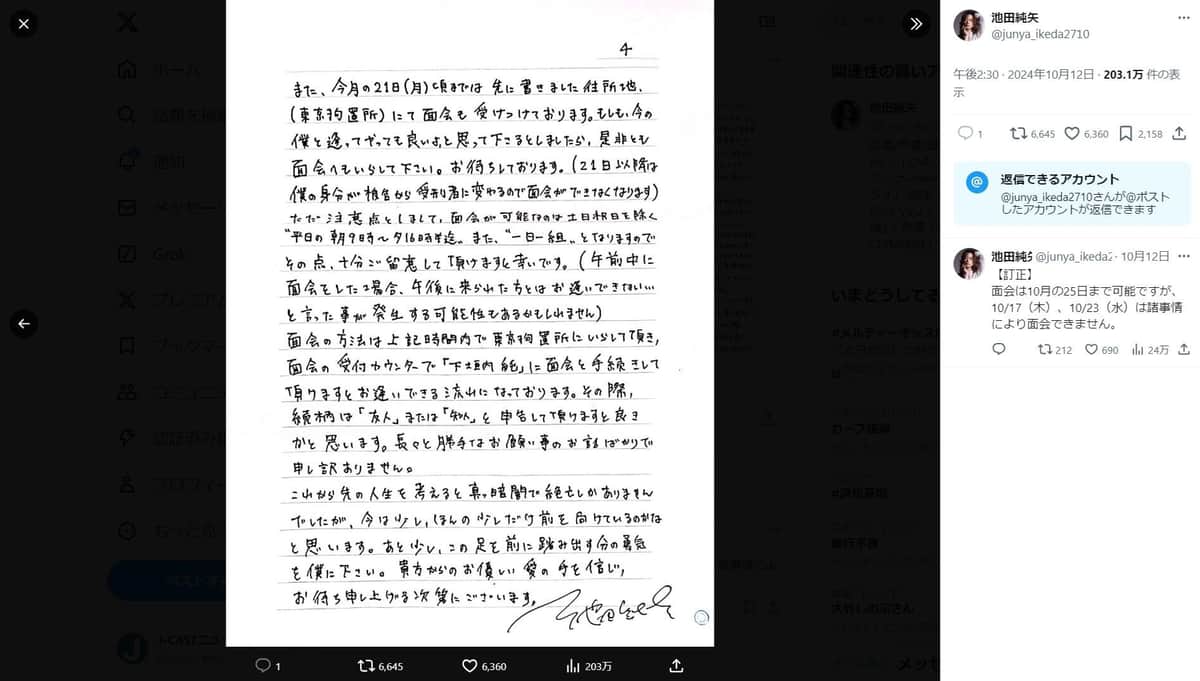 4
また、今月の21日(月)頃までは先に書きました住所地、
(東京拘置所)にて面会も受けつけております。もしも、今の
僕と逢ってやっても良いよと思って下さるとしましたら、是非とも
面会へもいらして下さい。お待ちしております。(21日以降は
僕の身分が被告から受刑者に変わるので面会ができなくなります)
ただ注意点としまして、面会が可能なのは土日祝日を除く
"平日の朝9時〜夕16時半迄〟また、"一日一組〟となりますので
その点、十分ご留意して頂けますと幸いです。(午前中に
面会をした場合、午後に来られた方とはお逢いできない…
と言った事が発生する可能性もあるかもしれません)
面会の方法は上記時間内で東京拘置所にいらして頂き、
面会の受付カウンターで「下垣内 能」に面会と手続きして
頂けますとお逢いできる流れになっております。その際、
続柄は「友人」または「知人」と申告して頂けますと良き
かと思います。長々と勝手なお願い事のお話ばかりで
申し訳ありません。
これから先の人生を考えると真っ暗闇で絶望しかありません
でしたが、今は少し、ほんの少しだけ前を向けているのかな
と思います。あと少し、この足を前に踏み出す分の勇気
を僕に下さい。貴方からのお優しい愛の手を信じ、
お待ち申し上げる次第にございます。
1
6,645
6,360
203万
池田純矢
@junya_ikeda2710
午後2:30 · 2024年10月12日 · 203.1万 件の表
示
1
6,645
6,360
2,158
返信できるアカウント
@junya_ikeda2710さんが@ポスト
したアカウントが返信できます
@junya_ikeda2 · 10月12日
【訂正】
面会は10月の25日まで可能ですが、
10/17（木）、10/23（水）は諸事情
により面会できません。
212
690
24万